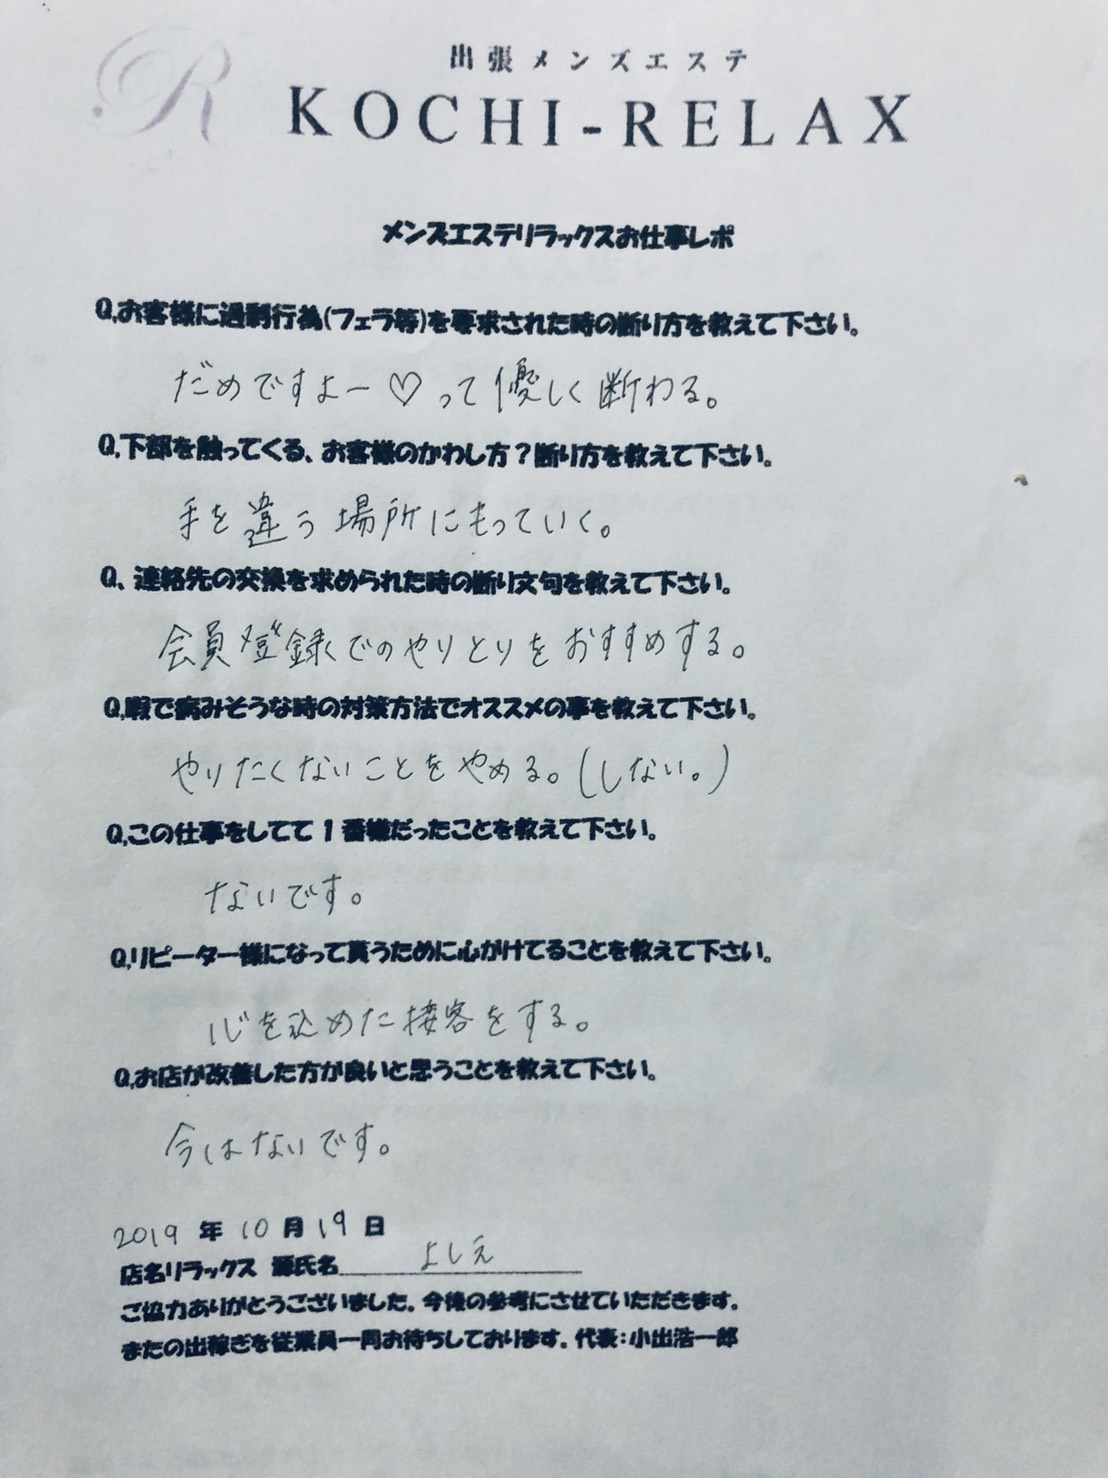 R
出張メンズエステ
KOCHI-RELAX
メンズエステリラックスお仕事レポ
Q,お客様に過剰行為(フェラ等)を要求された時の断り方を教えて下さい。
だめですよー♡って優しく断わる。
Q,下部を触ってくる、お客様のかわし方?断り方を教えて下さい。
手を違う場所にもっていく。
Q、連絡先の交換を求められた時の断り文句を教えて下さい。
会員登録でのやりとりをおすすめする。
Q,暇で病みそうな時の対策方法でオススメの事を教えて下さい。
やりたくないことをやめる。(しない。)
Q,この仕事をしてて1番嫌だったことを教えて下さい。
ないです。
Q,リピーター様になって貰うために心がけてることを教えて下さい。
心を込めた接客をする。
Q,お店が改善した方が良いと思うことを教えて下さい。
今はないです。
2019年10月19日
店名リラックス 源氏名 よしえ
ご協力ありがとうございました。今後の参考にさせていただきます。
またの出稼ぎを従業員一同お待ちしております。代表:小出浩一郎